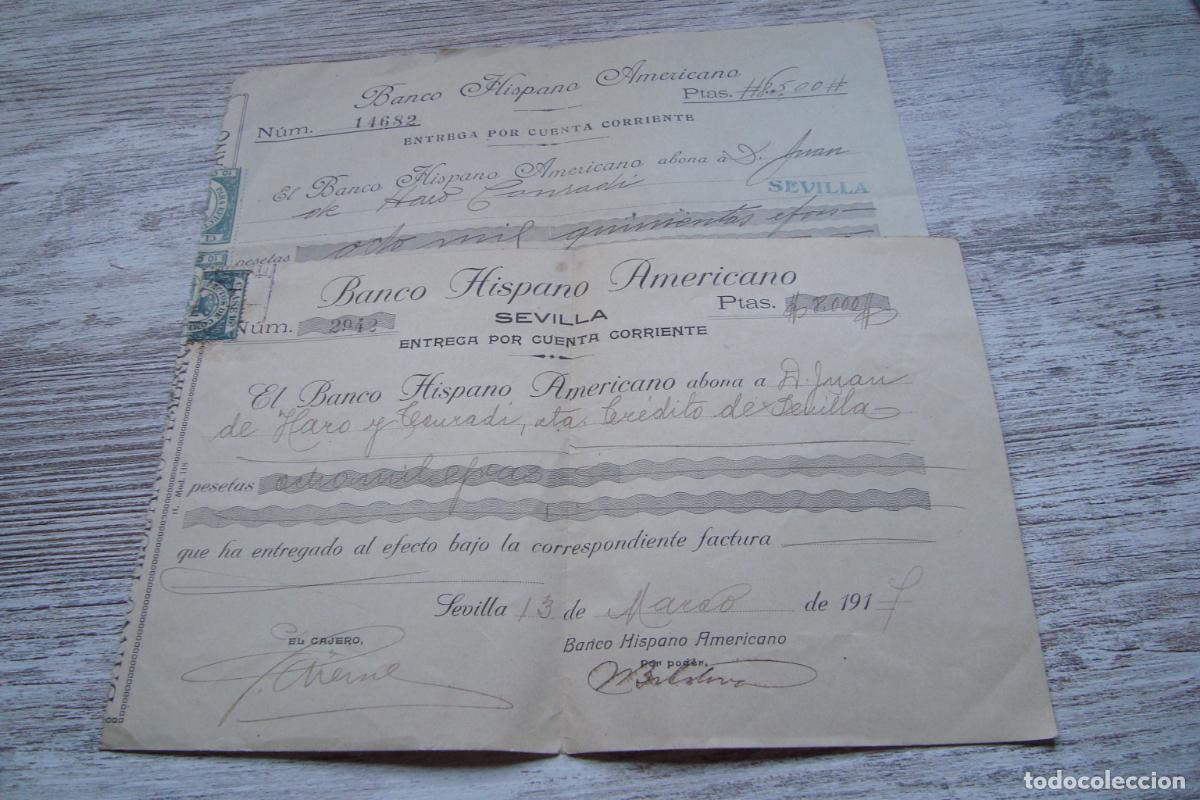 Banco Hispano Americano
Núm. 14682
Ptas. #8.500#
ENTREGA POR CUENTA CORRIENTE
El Banco Hispano Americano abona á D. Juan
de Haro Conradi
SEVILLA
pesetas ocho mil quinientas
Banco Hispano Americano
SEVILLA
Núm. 2942
Ptas. 8.000
ENTREGA POR CUENTA CORRIENTE
El Banco Hispano Americano abona a D. Juan
de Haro y Conradi, cta. Crédito de Sevilla
pesetas ocho mil
que ha entregado al efecto bajo la correspondiente factura
Sevilla 13 de Marzo de 1917
EL CAJERO,
Banco Hispano Americano
Por poder,
Mod. 118
todocoleccion